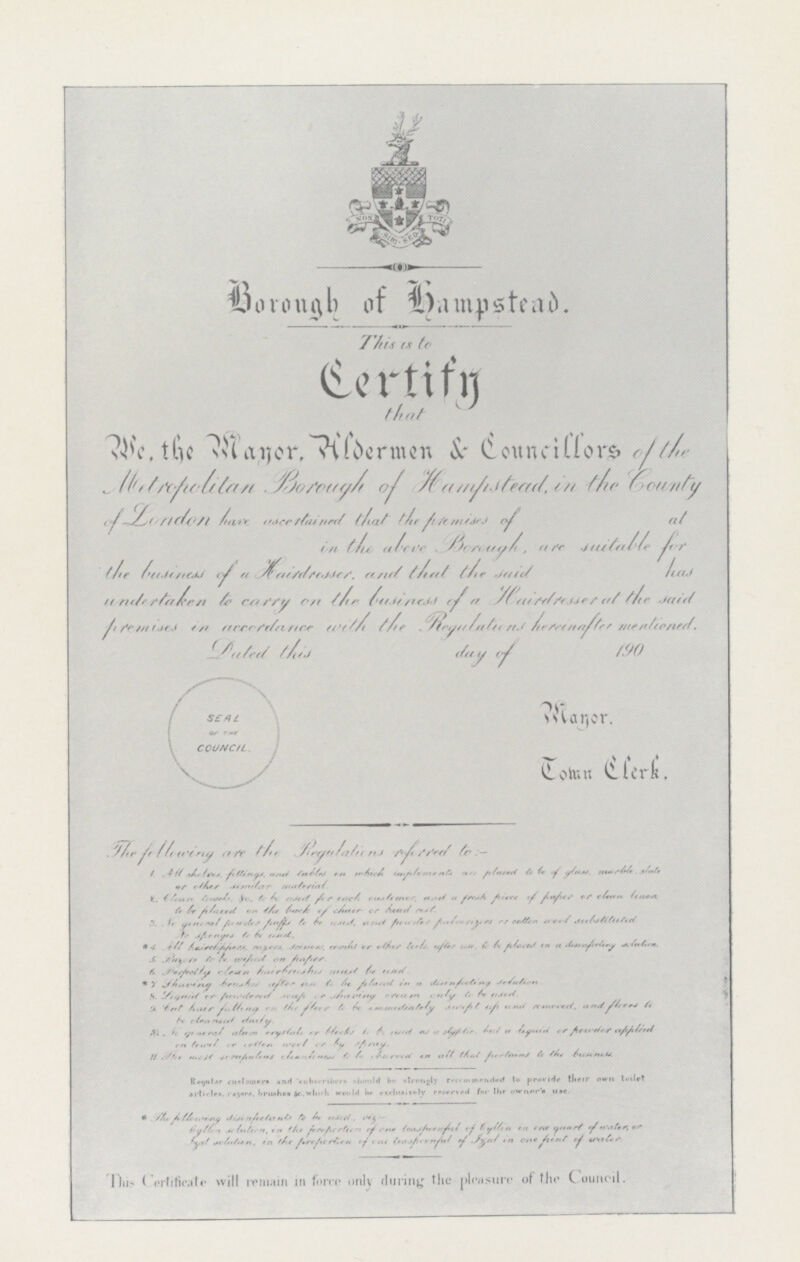 NON SIBI SED TOTI
Borough of Hampstead.
This is to
Certify
that
We, the Mayor, Aldermen & Councillors of the
Metropolitan Borough of Hampstead, in the County
of London have ascertained that the premises of at
in the above Borough, are suitable for
the business of a Hairdresser, and that the said has
undertaken to carry on the business of a Hairdresser at the said
premises in accordance with the Regulations hereinafter mentioned.
Dated this day of 190
SEAL
OF THE
COUNCIL.
Mayor.
Town Clerk.
The following are the Regulations referred to:-
1. All shelves, fittings, and tables on which implements are placed to be of glass, marble, slate
or other similar material.
2. Clean towels, &c, to be used for each customer, and a fresh piece of paper or clean linen
to be placed on the back of chair or head rest.
3. No general powder puffs to be used, and powder pulverizers or cotton wool substituted.
No sponges to be used.
*4. All hairclippers, razors, scissors, combs or other tools, after use, to be placed in a disinfecting solution.
5. Razors to be wiped on paper.
6. Perfectly clean hairbrushes must be used.
*7. Shaving brushes after use to be placed in a disinfecting solution.
8. Liquid or powdered soap or shaving cream only to be used.
9. Cut hair falling on the floor to be immediately swept up and removed, and floors to
be cleansed daily.
10. No general alum crystals or blocks to be used as a styptic, but a liquid or powder applied
on towel or cotton wool or by spray.
11. The most scrupulous cleanliness to be observed in all that pertains to the business.
Regular customers and subscribers should be strongly recommended to provide their own toilet
articles, razors, brushes &c, which would be exclusively reserved for the owner's use.
* The following disinfectants to be used, viz:-
Cyllin solution, in the proportion of one teaspoonful of Cyllin in one quart of water, or
Izal solution, in the proportion of one teaspoonful of Izal in one pint of water.
This Certificate will remain in force only during the pleasure of the Council.